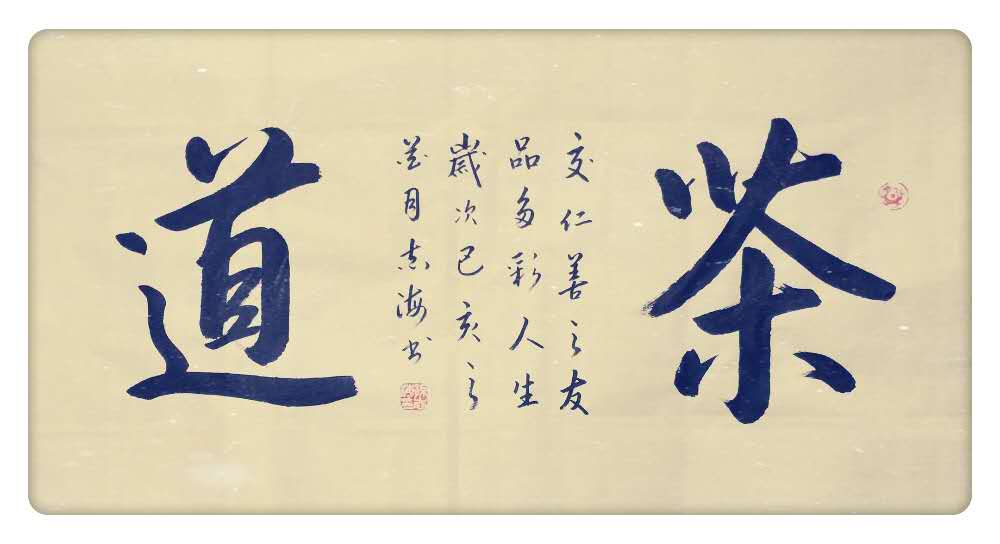 茶
交仁善之友
品多彩人生
歲次己亥之
月志海书
道